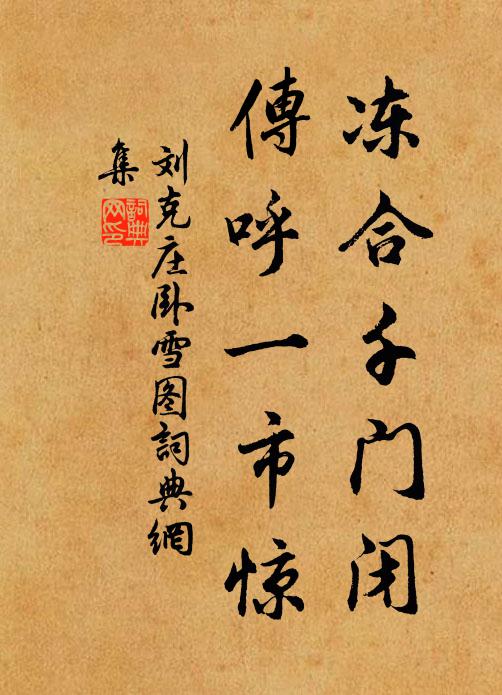 冻合千门闭
傳呼一市惊
刘克庄卧雪图詞典網
集
詞典网印